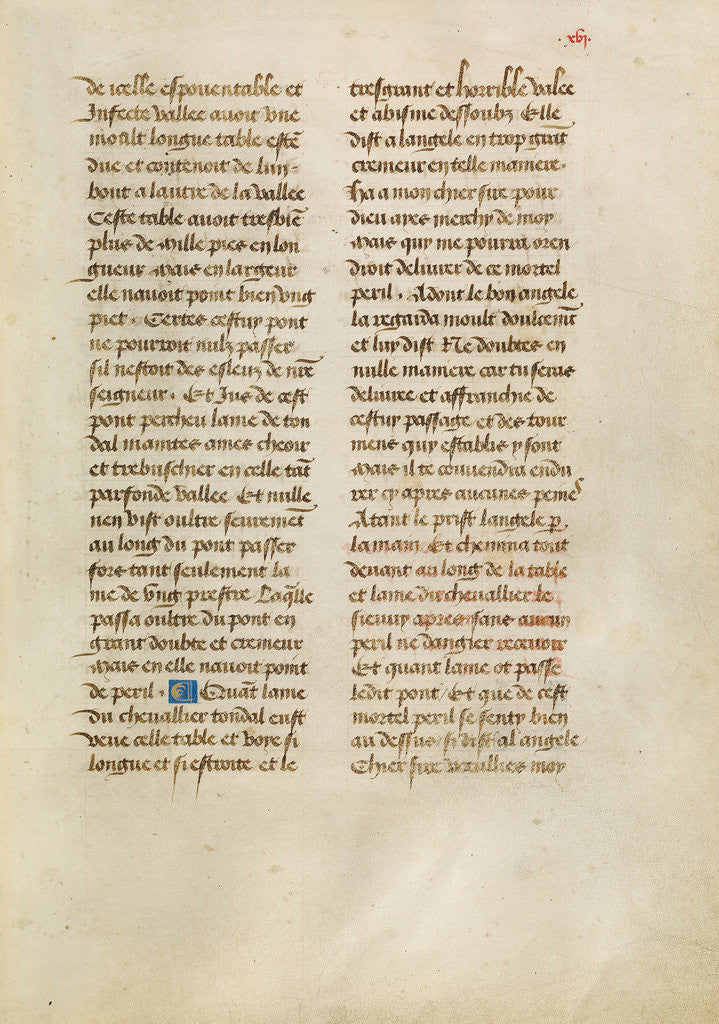 .xvj.
de icelle espouentable et
Infecte vallee auoit vne
moult longue table estē
due et contenoit de lun-
bout a lautre de la vallee
Ceste table auoit tresbiē
plus de mille pies en lon
gueur mais en largeur
elle nauoit point bien vng
piet . Certes cestuy pont
ne pourroit nulz passer
sil nestoit des esleuz de nrē
seigneur . Et Jus de cest
pont percheu lame de ton
dal maintes ames cheoir
et trebuschier en celle tāt
parfonde vallee Et nulle
nen vist oultre seuremēt
au long du pont passer
fors tant seulement la
me de vng prestre Laq̄lle
passa oultre du pont en
grant doubte et cremeur
mais en elle nauoit point
de peril . Quāt lame
du cheuallier tondal eust
veue celle table et voye si
longue et si estroite et le
tresgrant et horrible valee
et abisme dessoubz Elle
dist a langele en trop grāt
cremeur en telle maniere .
Ha a mon chier sire pour
dieu ayes merchy de moy
mais quy me pourra oren
droit deliurer de ce mortel
peril . Adont le bon angele
la regarda moult doulcemēt
et luy dist Ne doubtes en
nulle maniere car tu seras
deliure et affranchie de
cestuy passage et des tour
mens quy establis y sont
mais il te conuendra endu
rer cy apres aucunes peines
Atant le prist langele p̱
la main Et chemina tout
deuant au long de la table
et lame du cheuallier le
sieuuy apres sans aucun
peril ne dangier receuoir
Et quant lame ot passe
ledit pont / Et que de cest
mortel peril se senty bien
au dessus / si dist al angele
Chier sire veullies moy